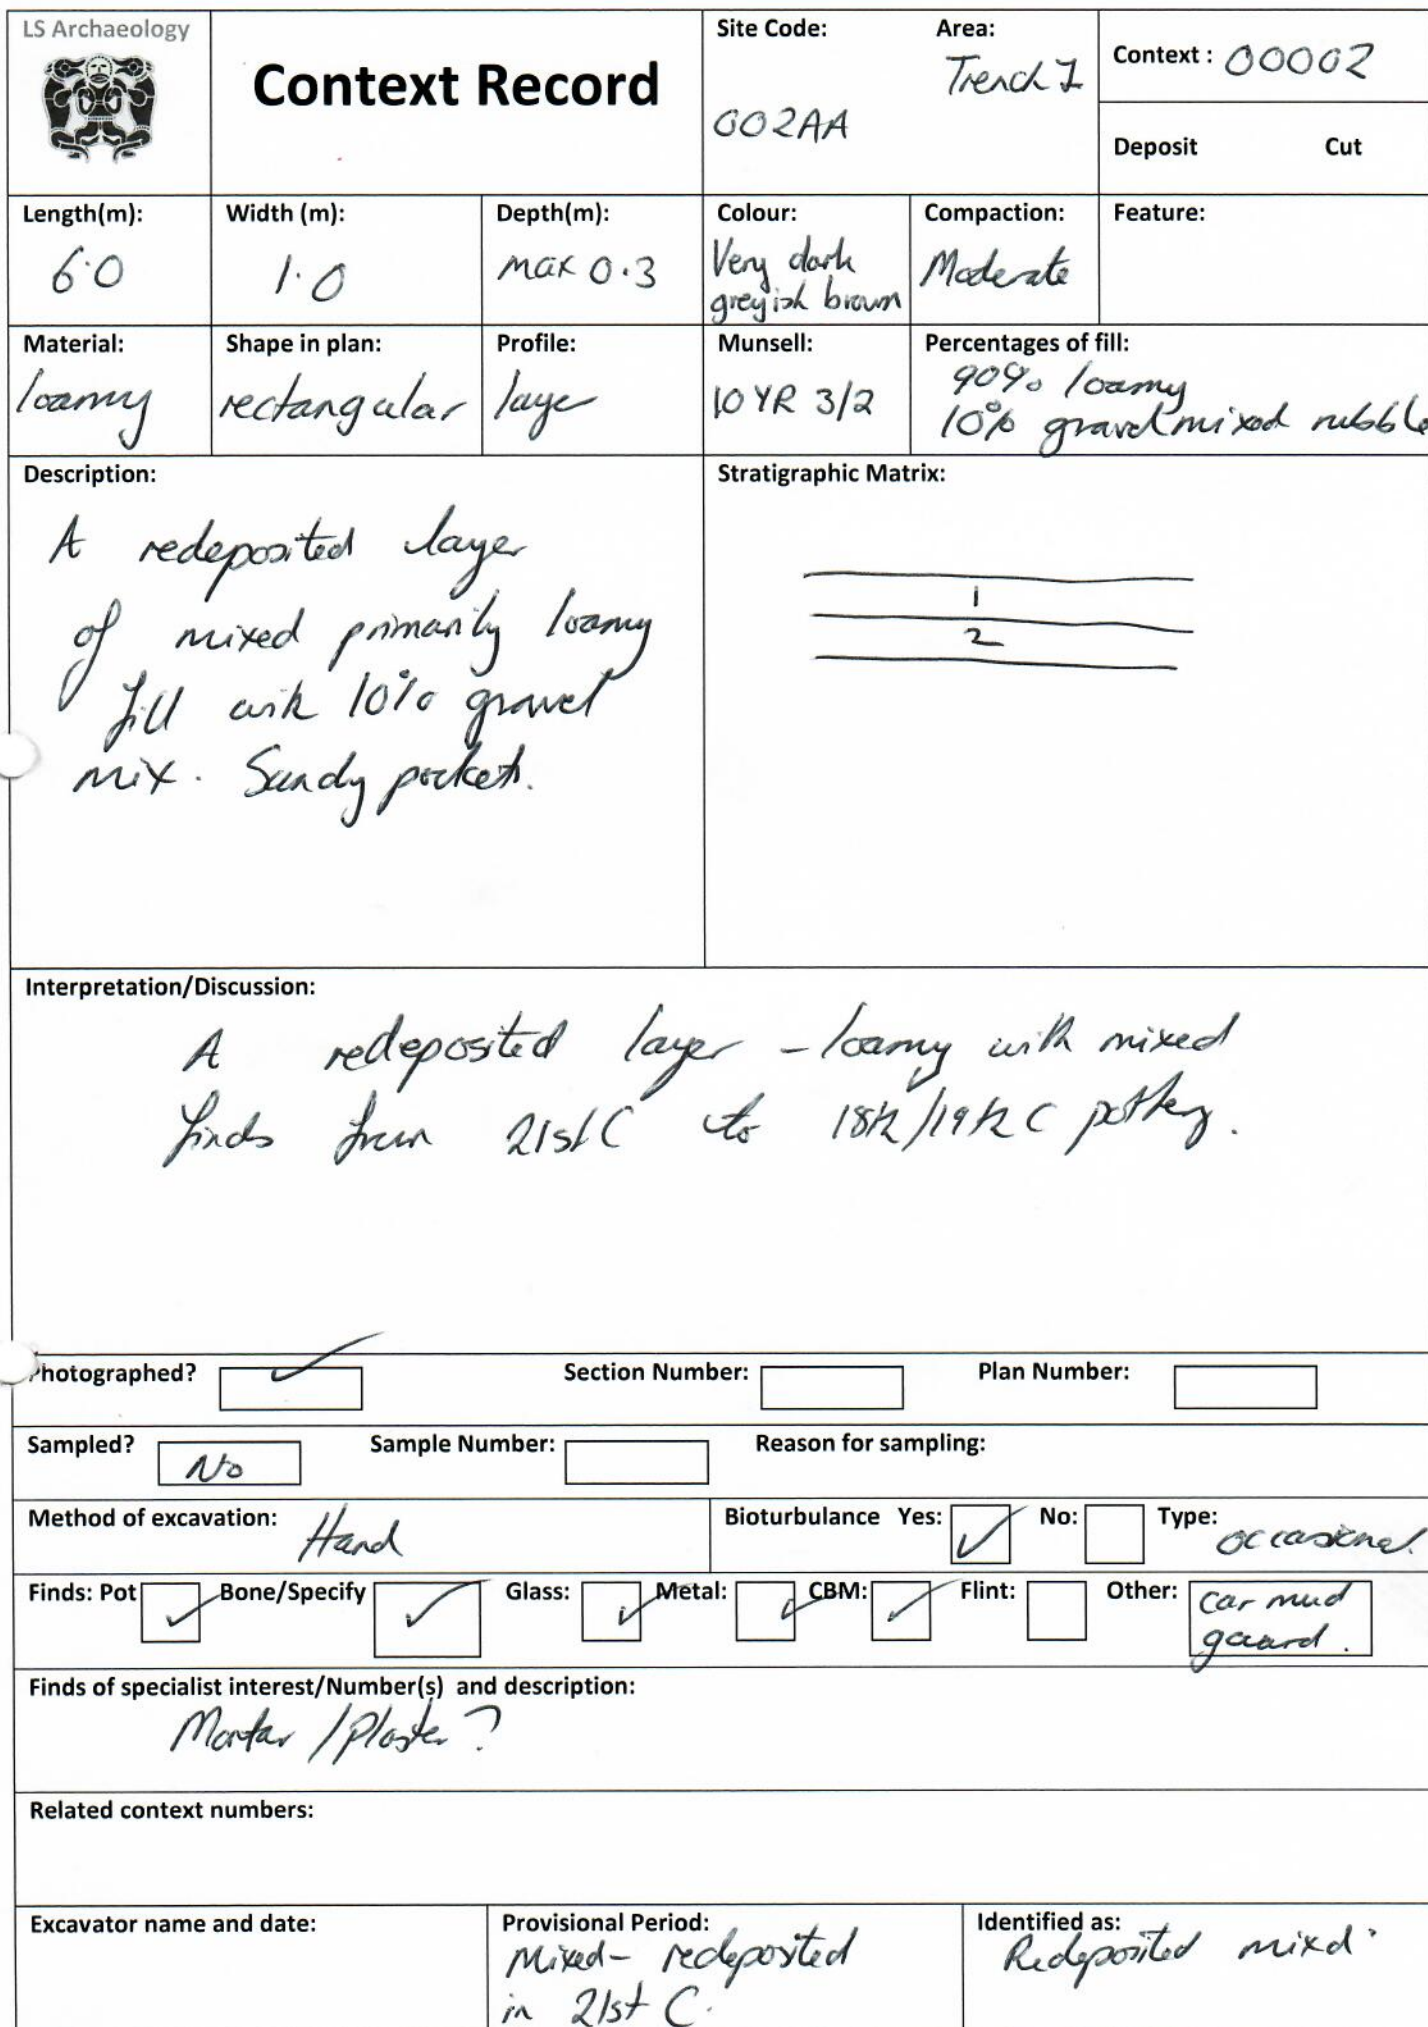 LS Archaeology
Context Record
Site Code:
002AA
Area:
Trench 1
Context : 00002
Deposit Cut
Length(m):
6.0
Width (m):
1.0
Depth(m):
max 0.3
Colour:
Very dark
greyish brown
Compaction:
Moderate
Feature:
Material:
loamy
Shape in plan:
rectangular
Profile:
layer
Munsell:
10 YR 3/2
Percentages of fill:
90% loamy
10% gravel mixed rubble
Description:
A redeposited layer
of mixed primarily loamy
fill with 10% gravel
mix. Sandy pockets.
Stratigraphic Matrix:
1
2
Interpretation/Discussion:
A redeposited layer - loamy with mixed
finds from 21st C to 18th/19th C pottery.
Photographed? Section Number: Plan Number:
Sampled? No Sample Number: Reason for sampling:
Method of excavation: Hand
Bioturbulance Yes: No: Type: occasional.
Finds: Pot Bone/Specify Glass: Metal: CBM: Flint: Other: car mud
guard.
Finds of specialist interest/Number(s) and description:
Mortar / Plaster?
Related context numbers:
Excavator name and date:
Provisional Period:
Mixed - redeposited
in 21st C.
Identified as:
Redeposited mixd.